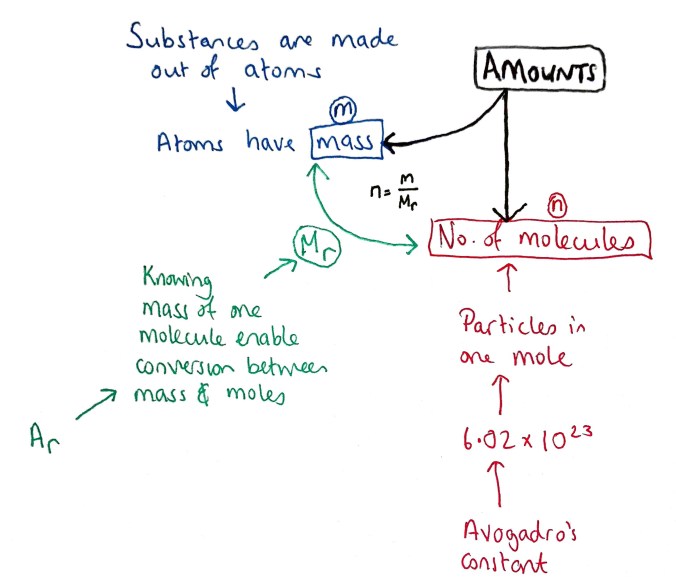 Substances are made
out of atoms
AMOUNTS
m
Atoms have mass
n = m/Mr
n
No. of molecules
Mr
Knowing
mass of one
molecule enable
conversion between
mass & moles
Ar
Particles in
one mole
6.02 x 10²³
Avogadro's
constant